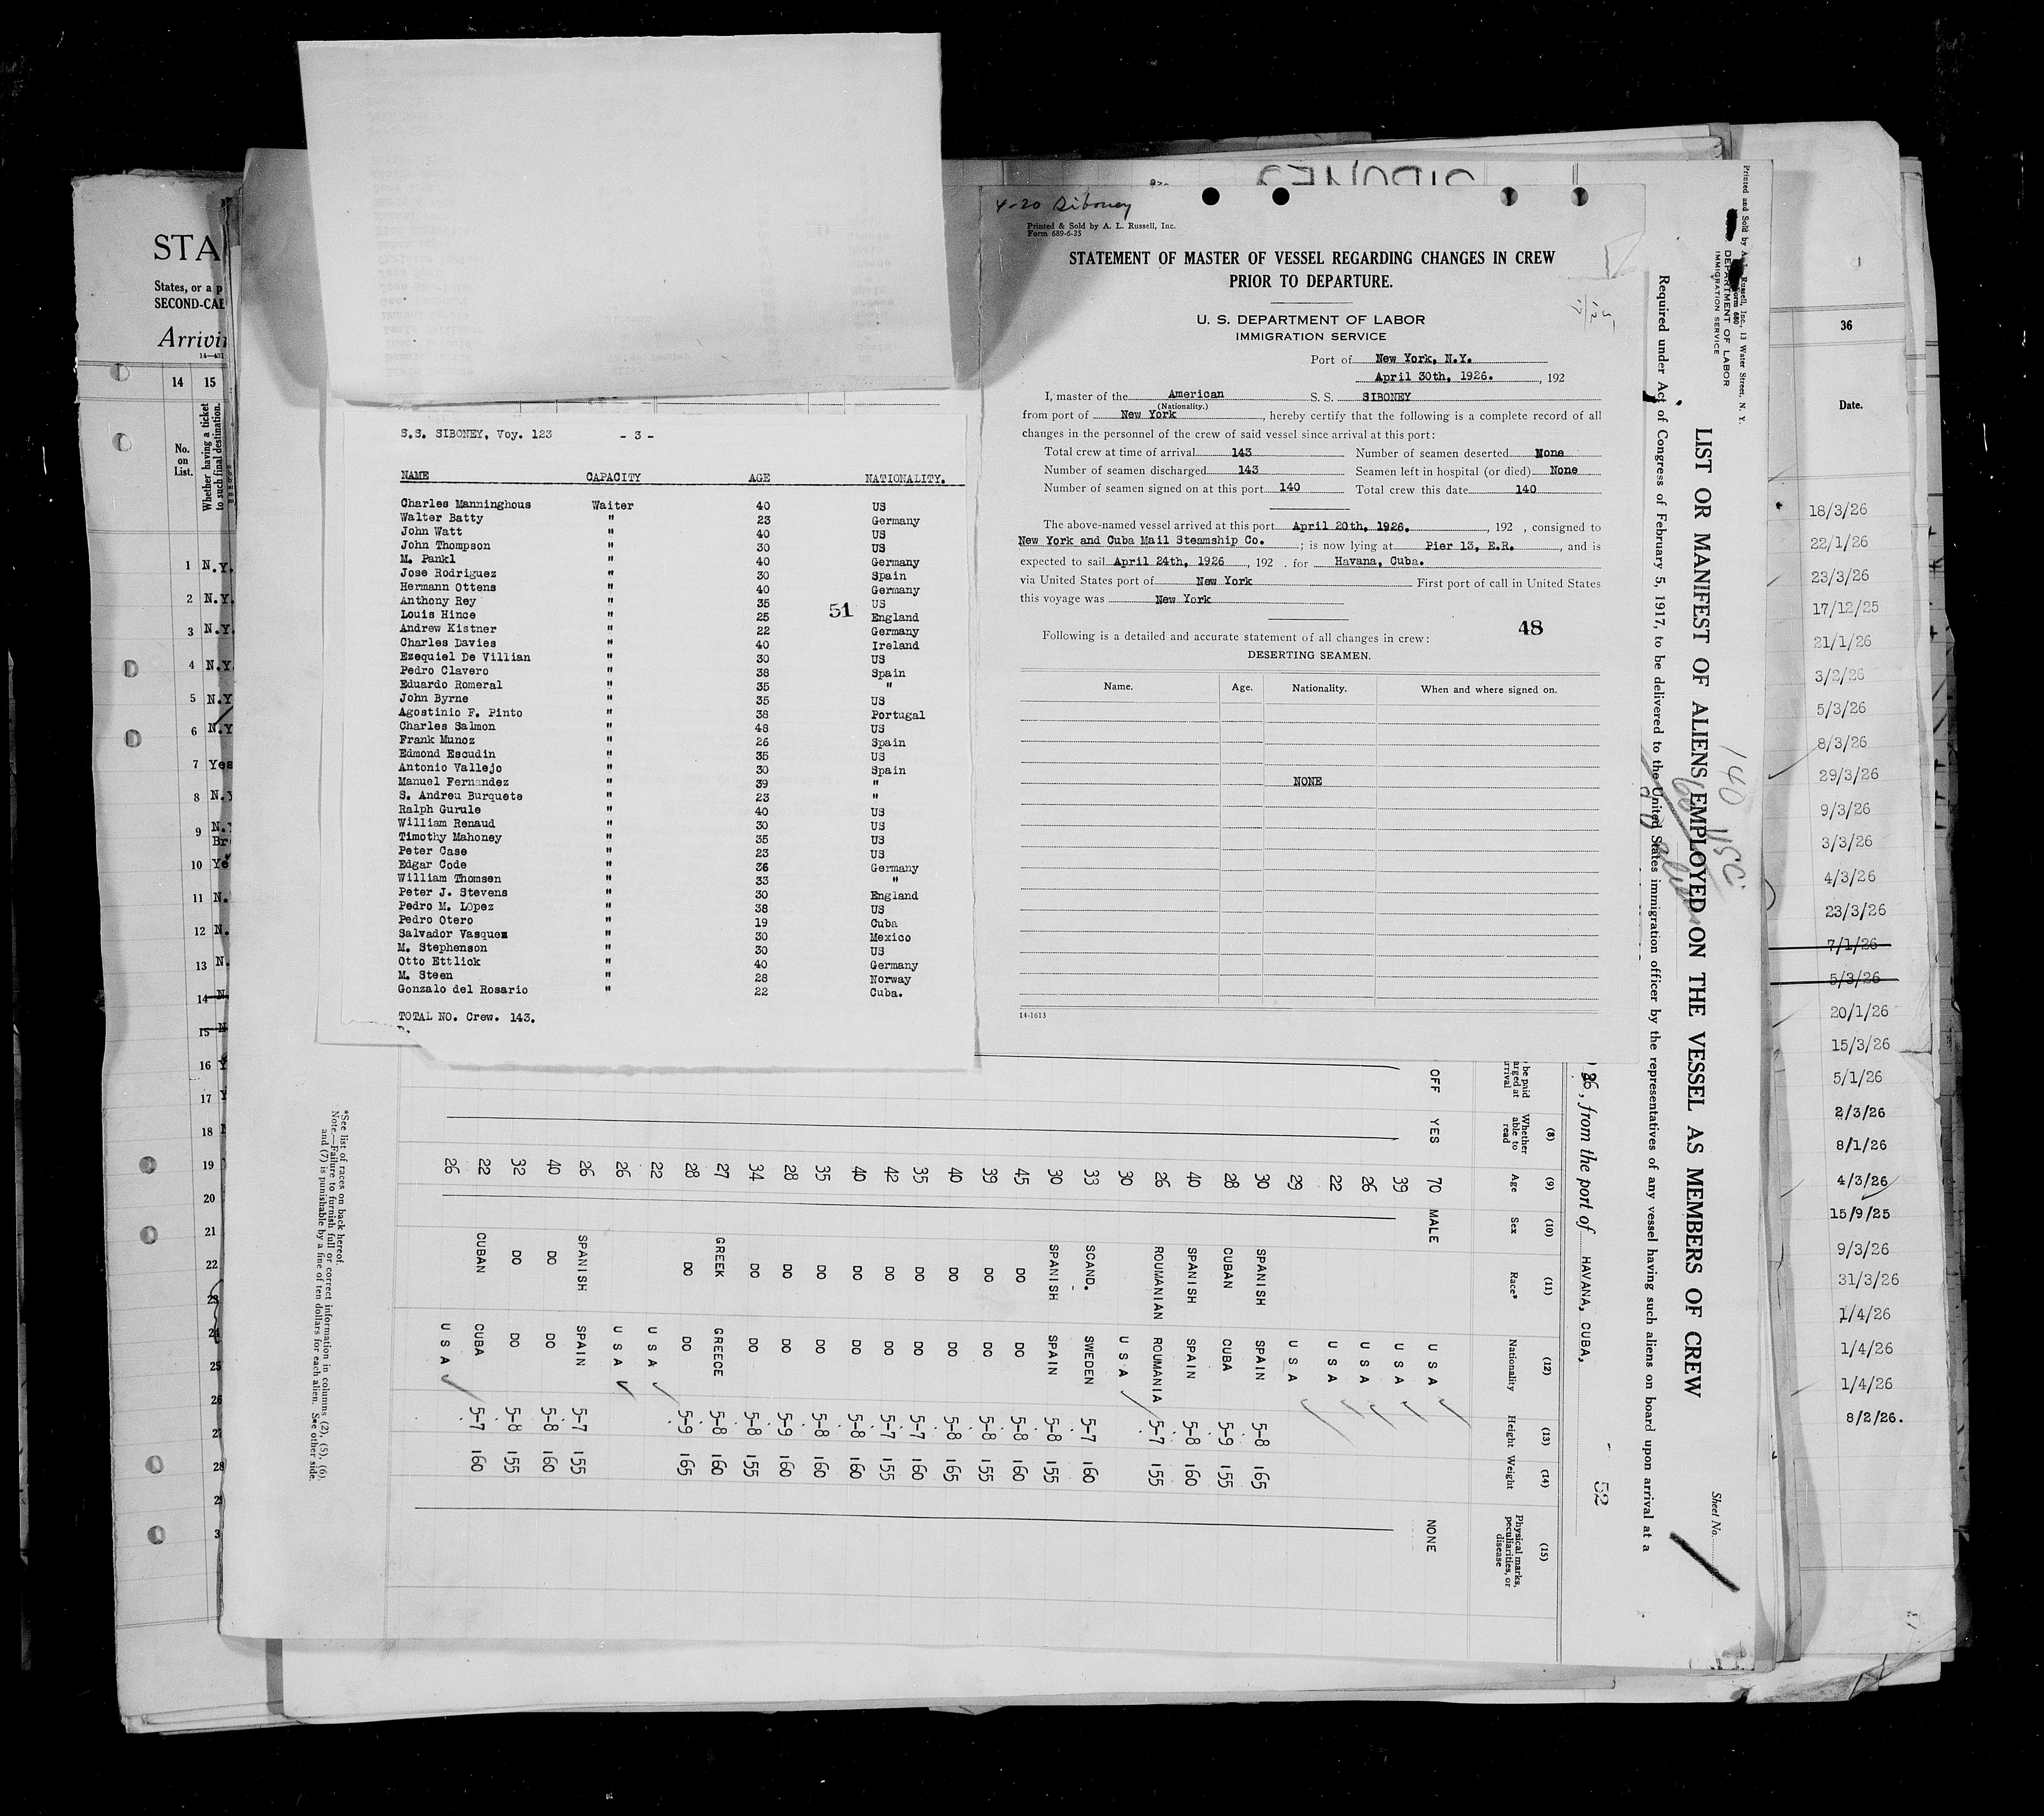 STA
States, or a p
SECOND-CAB
Arrivin
14 15
No.
on
List.
Whether having a ticket
to such final destination.
1 N.Y.
2 N.Y.
3 N.Y.
4 N.Y
5 N.Y
6 N.Y
7 Yes
8 N.Y
9 N.Y
Br
10 Ye
11 N.
12 N.
13 N.
14 N
15 N
16 Y
17 Y
18
19
20
21
22
23
24
25
26
27
28
S.S. SIBONEY, Voy. 123 - 3 -
NAME CAPACITY AGE NATIONALITY.
Charles Manninghous Waiter 40 US
Walter Batty " 23 Germany
John Watt " 40 US
John Thompson " 30 US
M. Pankl " 40 Germany
Jose Rodriguez " 30 Spain
Hermann Ottens " 40 Germany
Anthony Rey " 35 US
51
Louis Hince " 25 England
Andrew Kistner " 22 Germany
Charles Davies " 40 Ireland
Ezequiel De Villian " 30 US
Pedro Clavero " 38 Spain
Eduardo Romeral " 35 "
John Byrne " 35 US
Agostinio F. Pinto " 38 Portugal
Charles Salmon " 48 US
Frank Munoz " 26 Spain
Edmond Escudin " 35 US
Antonio Vallejo " 30 Spain
Manuel Fernandez " 39 "
S. Andreu Burquete " 23 "
Ralph Gurule " 40 US
William Renaud " 30 US
Timothy Mahoney " 35 US
Peter Case " 23 US
Edgar Code " 36 Germany
William Thomsen " 33 "
Peter J. Stevens " 30 England
Pedro M. LOpez " 38 US
Pedro Otero " 19 Cuba
Salvador Vasquez " 30 Mexico
M. Stephenson " 30 US
Otto Ettlick " 40 Germany
M. Steen " 28 Norway
Gonzalo del Rosario " 22 Cuba.
TOTAL NO. Crew. 143.
SIBONEY
4-20 Siboney
Printed & Sold by A. L. Russell, Inc.
Form 689-6-25
STATEMENT OF MASTER OF VESSEL REGARDING CHANGES IN CREW
PRIOR TO DEPARTURE.
U. S. DEPARTMENT OF LABOR
IMMIGRATION SERVICE
Port of New York, N.Y.
April 30th, 1926. , 192
I, master of the American S. S. SIBONEY
(Nationality.)
from port of New York , hereby certify that the following is a complete record of all
changes in the personnel of the crew of said vessel since arrival at this port:
Total crew at time of arrival 143 Number of seamen deserted None
Number of seamen discharged 143 Seamen left in hospital (or died) None
Number of seamen signed on at this port 140 Total crew this date 140
The above-named vessel arrived at this port April 20th, 1926. , 192 , consigned to
New York and Cuba Mail Steamship Co. ; is now lying at Pier 13, E.R. , and is
expected to sail April 24th, 1926 , 192 . for Havana, Cuba.
via United States port of New York First port of call in United States
this voyage was New York
48
Following is a detailed and accurate statement of all changes in crew:
DESERTING SEAMEN.
Name. Age. Nationality. When and where signed on.
NONE
14-1613
Printed and Sold by A. L. Russell, Inc., 13 Water Street, N. Y.
Form 680
DEPARTMENT OF LABOR
IMMIGRATION SERVICE
Sheet No.
LIST OR MANIFEST OF ALIENS EMPLOYED ON THE VESSEL AS MEMBERS OF CREW
140
Required under Act of Congress of February 5, 1917, to be delivered to the United States immigration officer by the representatives of any vessel having such aliens on board upon arrival at a
26, from the port of HAVANA, CUBA,
52
(8) (9) (10) (11) (12) (13) (14) (15)
be paid
arged at
rrival
Whether
able to
read
Age Sex Race* Nationality Height Weight
Physical marks,
peculiarities, or
disease
OFF YES 70 MALE U S A NONE
39 U S A
26 U S A
22 U S A
29 U S A
30 SPANISH SPAIN 5-8 165
28 CUBAN CUBA 5-9 155
40 SPANISH SPAIN 5-8 160
26 ROUMANIAN ROUMANIA 5-7 155
30 U S A
33 SCAND. SWEDEN 5-7 160
30 SPANISH SPAIN 5-8 155
45 DO DO 5-8 160
39 DO DO 5-8 155
40 DO DO 5-8 165
35 DO DO 5-7 160
42 DO DO 5-7 155
40 DO DO 5-8 160
35 DO DO 5-8 160
28 DO DO 5-9 160
34 DO DO 5-8 155
27 GREEK GREECE 5-8 160
28 DO DO 5-9 165
22 U S A
26 U S A
26 SPANISH SPAIN 5-7 155
40 DO DO 5-8 160
32 DO DO 5-8 155
22 CUBAN CUBA 5-7 160
26 U S A
*See list of races on back hereof.
Note.—Failure to furnish full or correct information in columns (2), (5), (6),
and (7) is punishable by a fine of ten dollars for each alien. See other side.
36
Date.
18/3/26
22/1/26
23/3/26
17/12/25
21/1/26
3/2/26
5/3/26
8/3/26
29/3/26
9/3/26
3/3/26
4/3/26
23/3/26
7/1/26
5/3/26
20/1/26
15/3/26
5/1/26
2/3/26
8/1/26
4/3/26
15/9/25
9/3/26
31/3/26
1/4/26
1/4/26
1/4/26
8/2/26.